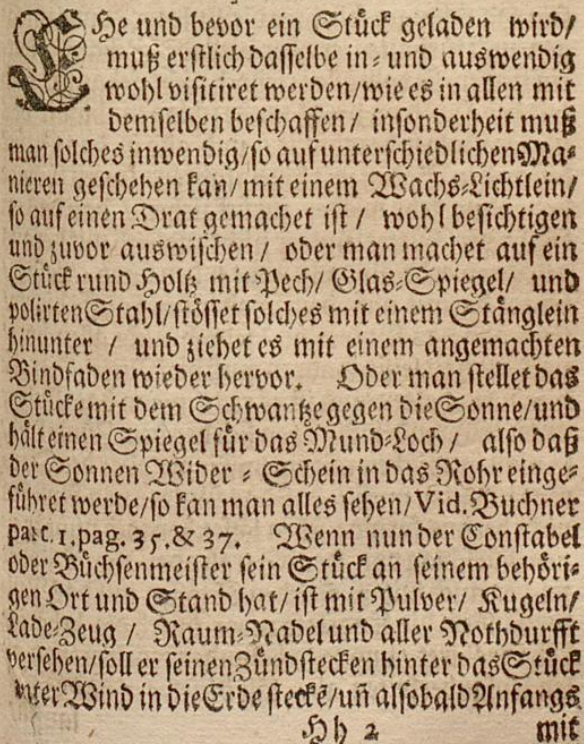 EHe und bevor ein Stück geladen wird/
muß erstlich dasselbe in- und auswendig
wohl visitiret werden/wie es in allen mit
demselben beschaffen / insonderheit muß
man solches inwendig/so auf unterschiedlichen Ma-
nieren geschehen kan/mit einem Wachs-Lichtlein/
so auf einen Drat gemachet ist / wohl besichtigen
und zuvor auswischen / oder man machet auf ein
Stück rund Holtz mit Pech/ Glas-Spiegel/ und
polirten Stahl/stösset solches mit einem Stänglein
hinunter / und ziehet es mit einem angemachten
Bindfaden wieder hervor. Oder man stellet das
Stücke mit dem Schwantze gegen die Sonne/und
hält einen Spiegel für das Mund-Loch / also daß
der Sonnen Wider - Schein in das Rohr einge-
führet werde/so kan man alles sehen/Vid. Buchner
part. 1. pag. 35. & 37. Wenn nun der Constabel
oder Büchsenmeister sein Stück an seinem behöri-
gen Ort und Stand hat/ ist mit Pulver/ Kugeln/
Lade-Zeug / Raum-Nadel und aller Nothdurfft
versehen/soll er seinen Zündstecken hinter das Stück
unter Wind in die Erde steckē/uñ alsobald Anfangs
Hh 2 mit